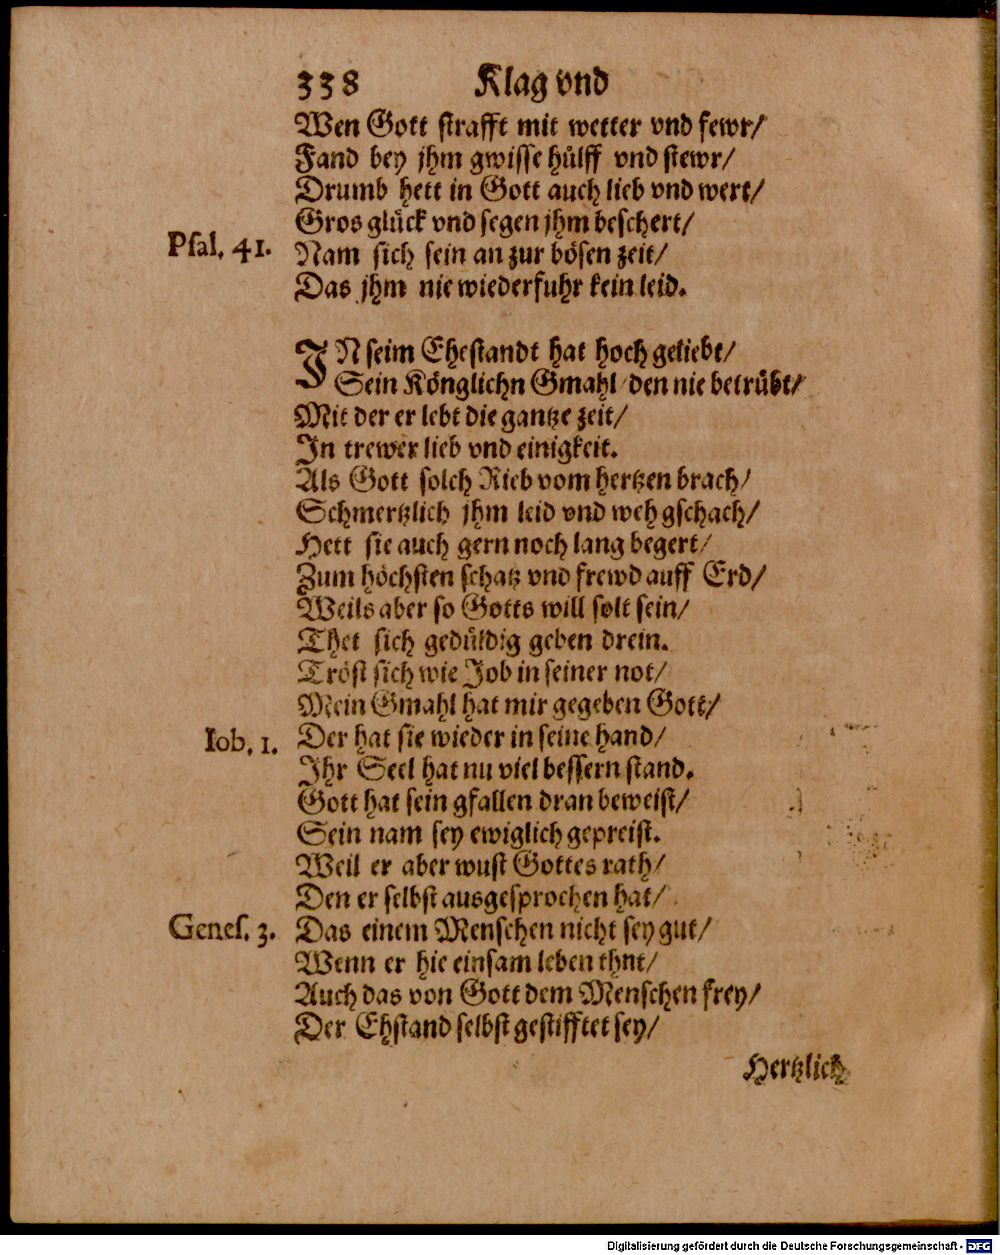 338 Klag vnd
Wen Gott strafft mit wetter vnd fewr/
Fand bey jhm gwisse hülff vnd stewr/
Drumb hett in Gott auch lieb vnd wert/
Gros glück vnd segen jhm beschert/
Psal. 41. Nam sich sein an zur bösen zeit/
Das jhm nie wiederfuhr kein leid.
IN seim Ehestandt hat hoch geliebt/
Sein Könglichn Gmahl den nie betrübt/
Mit der er lebt die gantze zeit/
In trewer lieb vnd einigkeit.
Als Gott solch Rieb vom hertzen brach/
Schmertzlich jhm leid vnd weh gschach/
Hett sie auch gern noch lang begert/
Zum höchsten schatz vnd frewd auff Erd/
Weils aber so Gotts will solt sein/
Thet sich gedüldig geben drein.
Tröst sich wie Job in seiner not/
Mein Gmahl hat mir gegeben Gott/
Iob. 1. Der hat sie wieder in seine hand/
Ihr Seel hat nu viel bessern stand.
Gott hat sein gfallen dran beweist/
Sein nam sey ewiglich gepreist.
Weil er aber wust Gottes rath/
Den er selbst ausgesprochen hat/
Genes. 3. Das einem Menschen nicht sey gut/
Wenn er hie einsam leben thut/
Auch das von Gott dem Menschen frey/
Der Ehstand selbst gestifftet sey/
Hertzlich
Digitalisierung gefördert durch die Deutsche Forschungsgemeinschaft - DFG